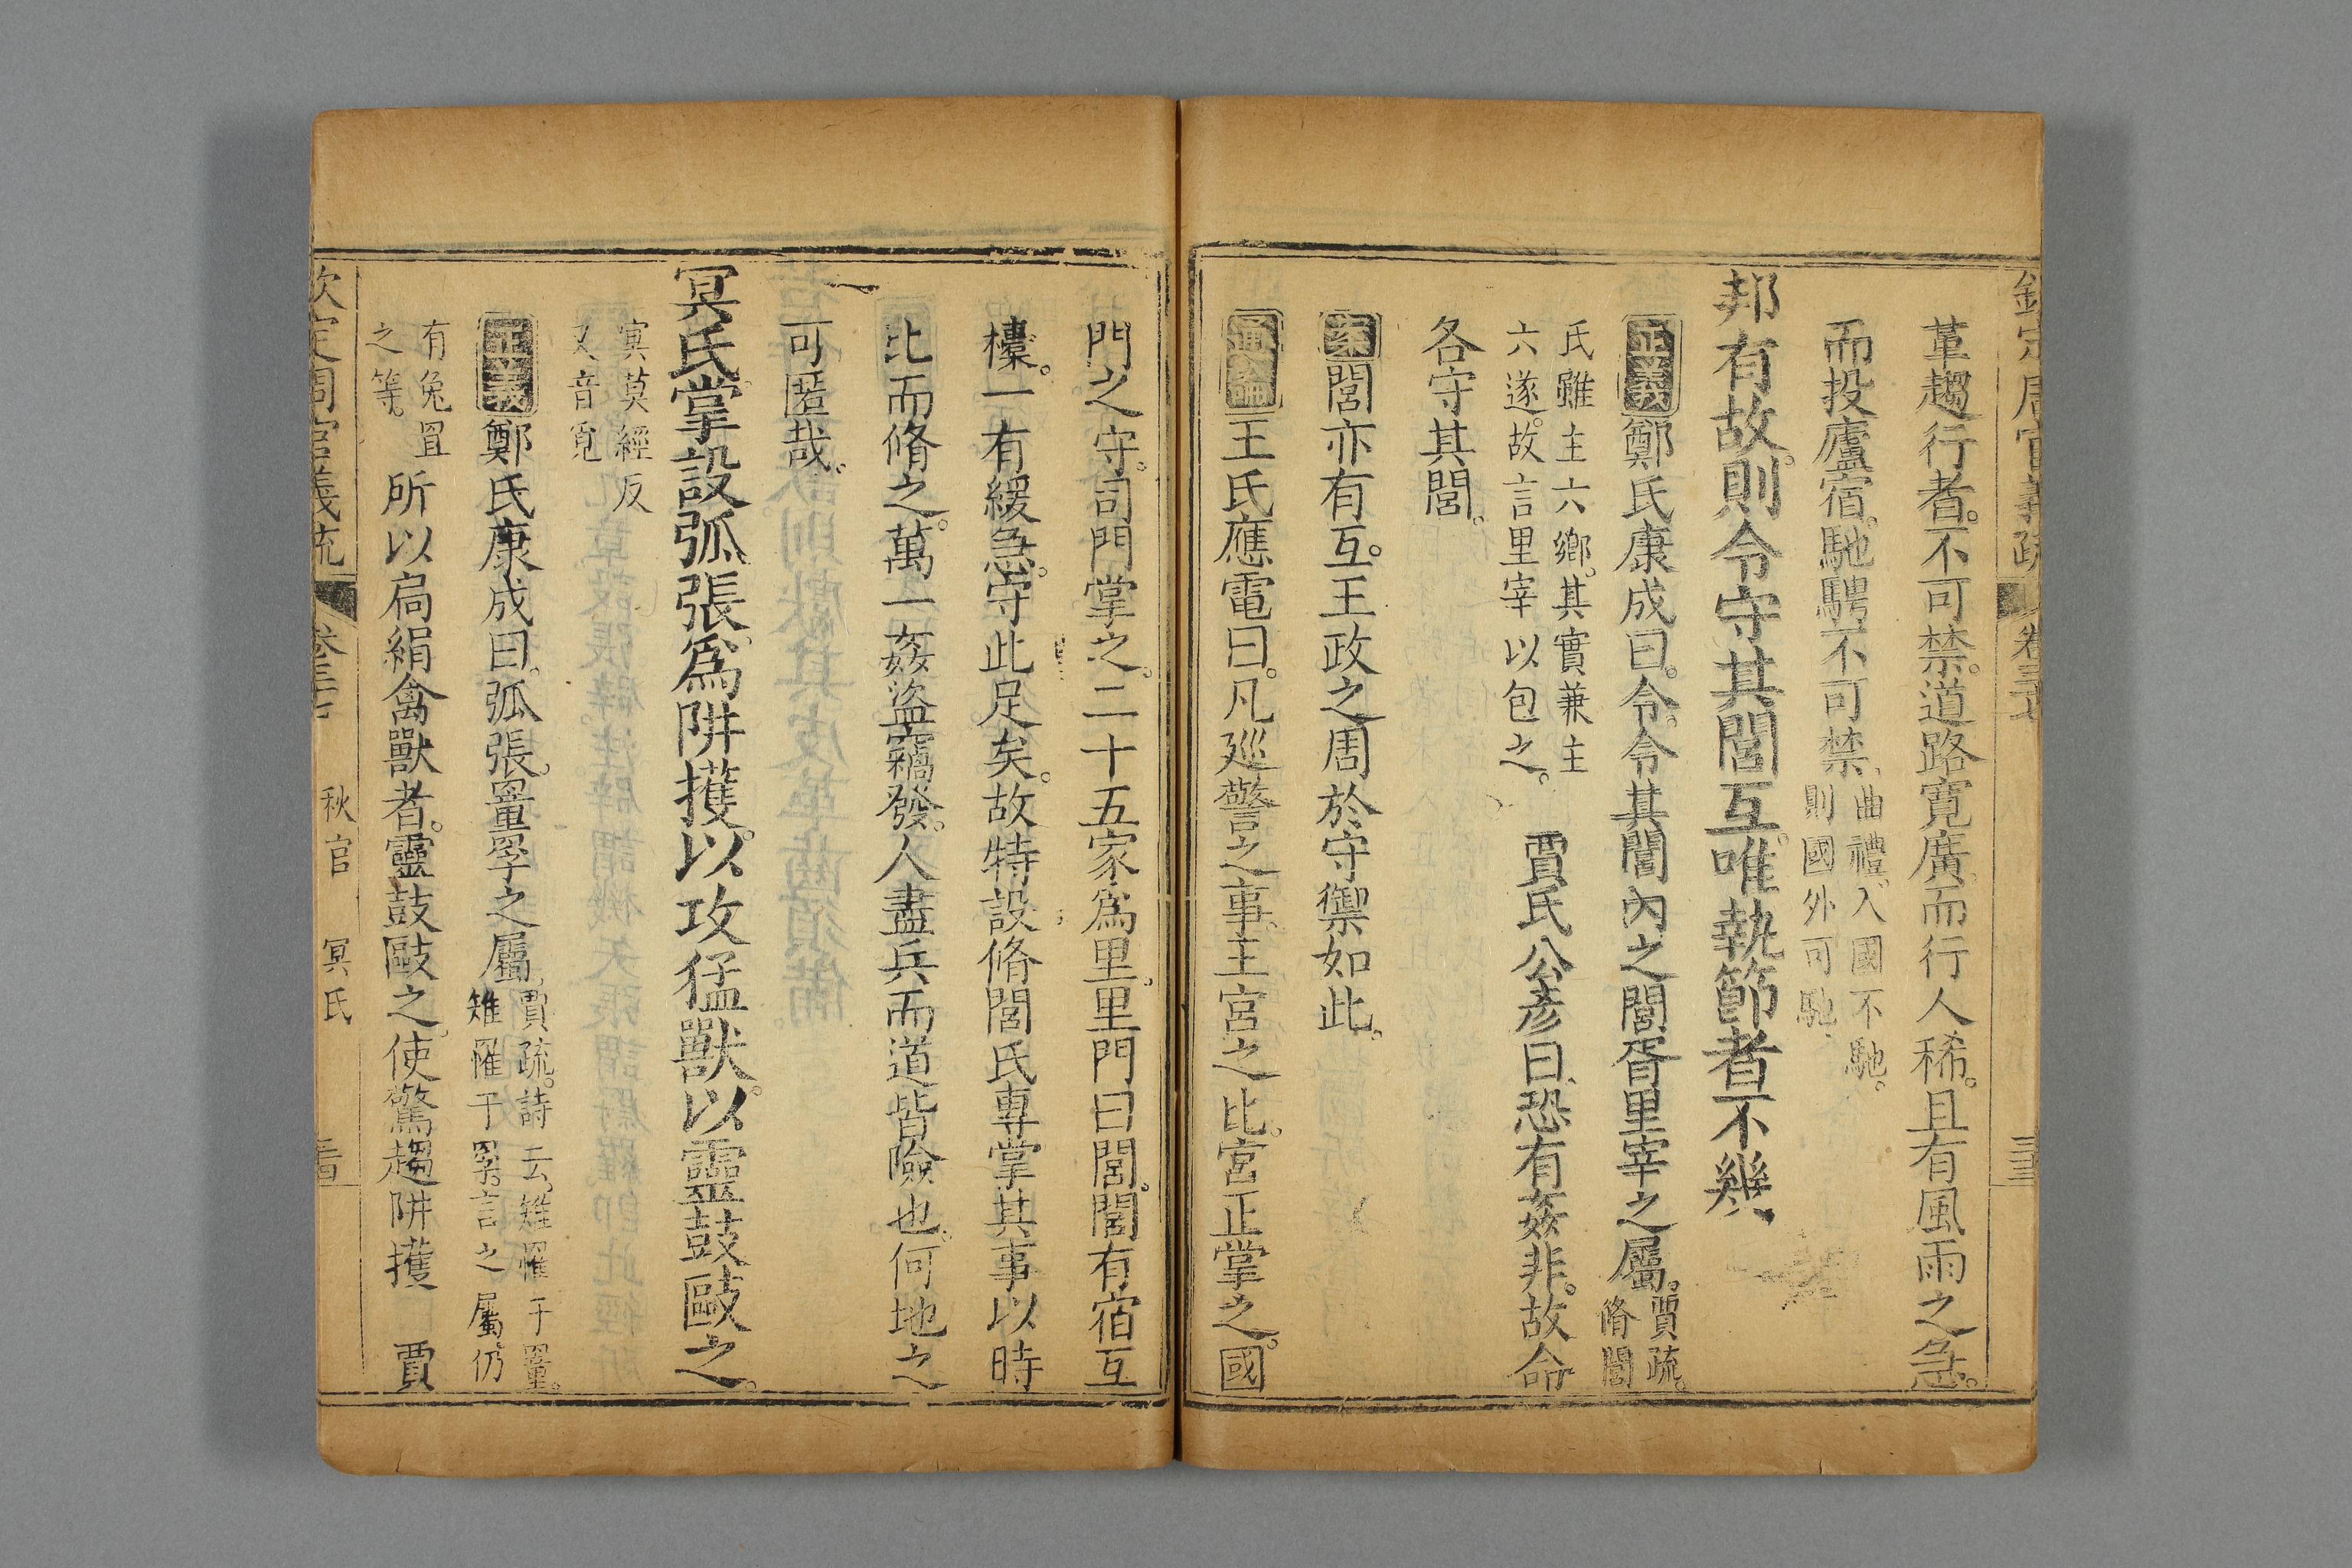 欽定周官義疏 卷三十七 三三
堇趨行者。不可禁。道路寬廣而行人稀。且有風雨之急。
而投廬宿。馳騁不可禁、曲禮、入國不馳。
則國外可馳、
邦有故則令守其閭互唯執節者不幾
正義鄭氏康成曰。令。令其閭內之閭胥里宰之屬。賈疏。
脩閭
氏雖主六鄉。其實兼主
六遂。故言里宰以包之。賈氏公彥曰、恐有姦非。故命
各守其閭。
案閭亦有互。王政之周於守禦如此。
通論王氏應電曰。凡廵警之事。主宮之比。宮正掌之。國
門之守。司門掌之。二十五家爲里。里門曰閭。閭有宿互
櫜。一有緩急。守此足矣。故特設脩閭氏專掌其事以時
比而脩之。萬一姦盜竊發。人盡兵而道皆險也。何地之
可匿哉。
冥氏掌設弧張爲阱擭以攻猛獸以靈鼓敺之。
㝠莫經反
又音覓
正義鄭氏康成曰。弧張。罿罦之屬。賈疏。詩云、雉罹于罿。
雉罹于罦。言之屬、仍
有兔罝
之等。所以扃絹禽獸者。靈鼓敺之。使驚趨阱擭 賈
欽定周官義疏 卷三十七 秋官 冥氏 三四